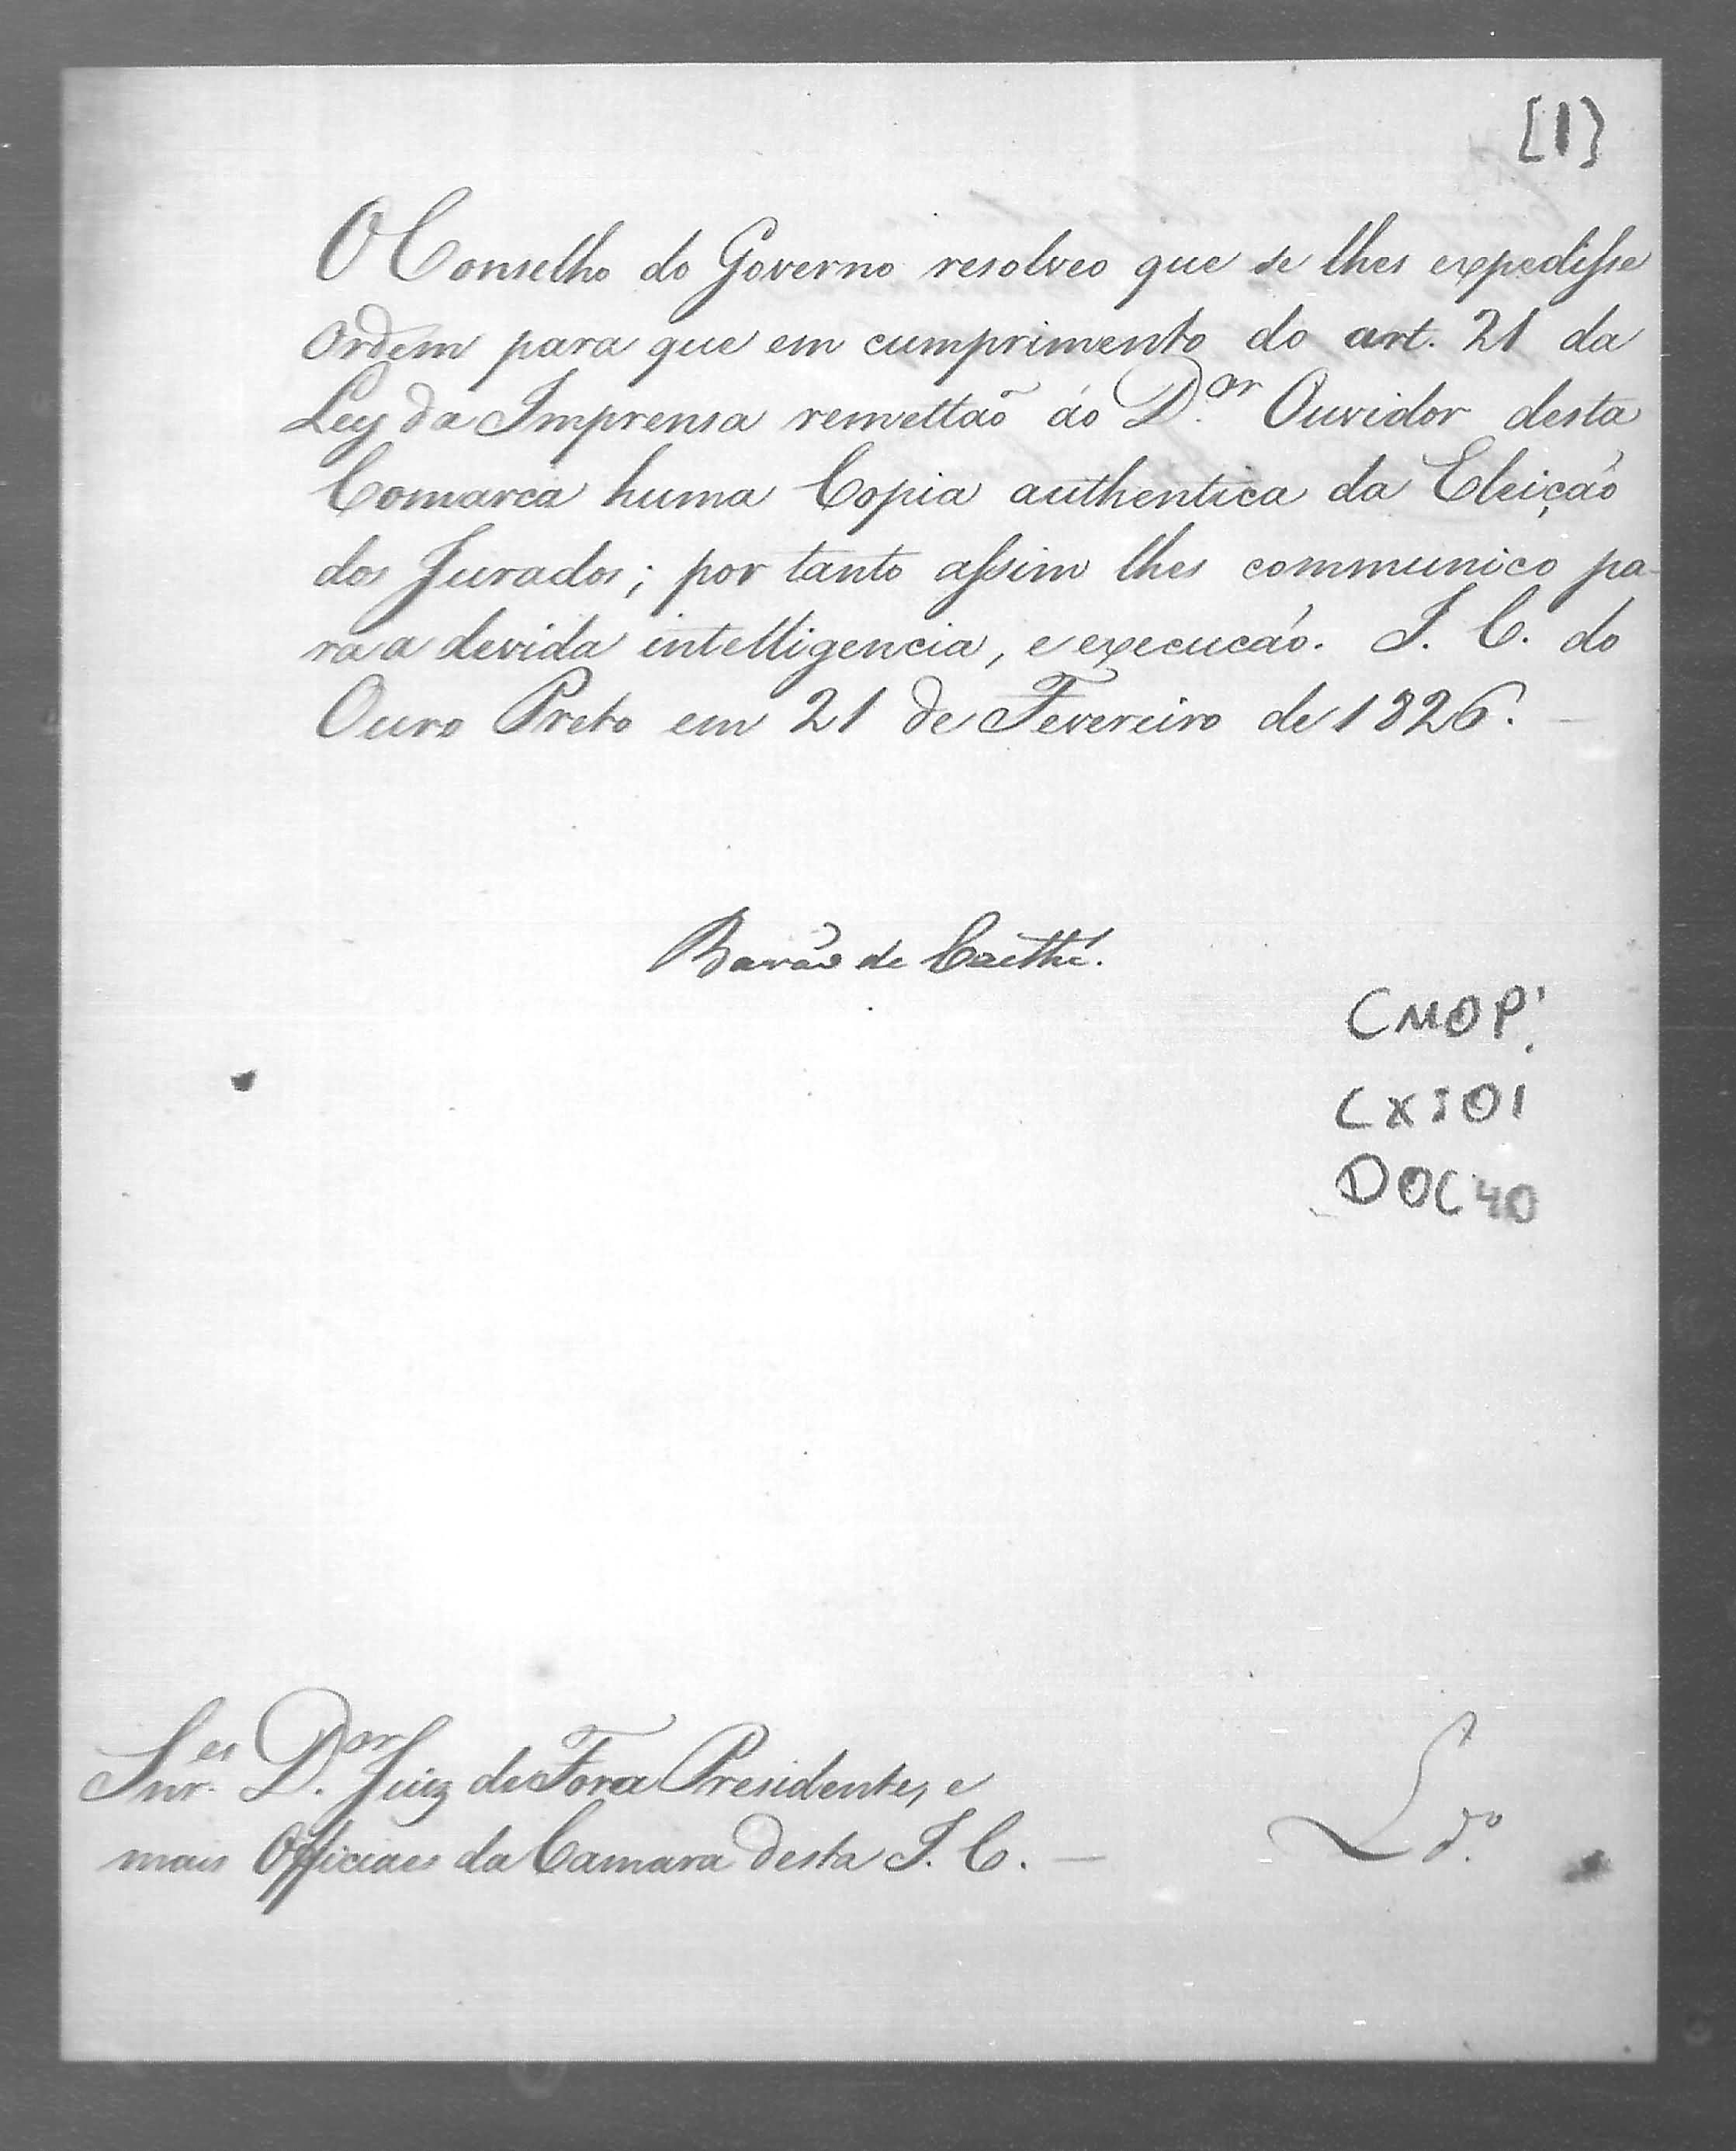 [1]
O Conselho do Governo resolveo que se lhes expedisse
Ordem para que em cumprimento do art. 21 da
Ley da Imprensa remettaõ áo D.or Ouvidor desta
Comarca huma Copia authentica da Eleiçaõ
dos Jurados; por tanto assim lhes communico pa-
ra a devida intelligencia, e execucaõ. I. C. do
Ouro Preto em 21 de Fevereiro de 1826. —
Baraõ de Caethé.
CMOP.
CX 101
DOC 40
Snr.es D.or Juiz de Fora Presidente, e
mais Officiaes da Camara desta I. C. —
L.do